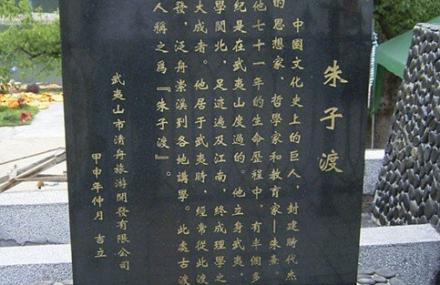 朱子渡
中國文化史上的巨人，封建時代杰
的思想家、哲學家和教育家——朱熹，
他七十一年的生命歷程中，有半個多
紀是在武夷山度過的。他立身武夷，
學開北，足迹遍及江南，終成理學之
大成者。他居于武夷時，經常從此渡
發，泛舟崇溪到各地講學。此處古渡
人稱之爲『朱子渡』。
武夷山市清舟旅游開發有限公司
甲申年仲月 吉立